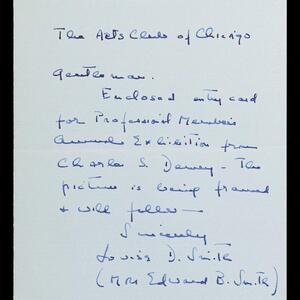 The Arts Club of Chicago
Gentleman.
Enclosed entry card
for Professional Members
Annual Exhibition from
Charles S. Dewey - The
picture is being framed
& will follow -
Sincerely
Louise D. Smith
(Mrs Edward B. Smith)